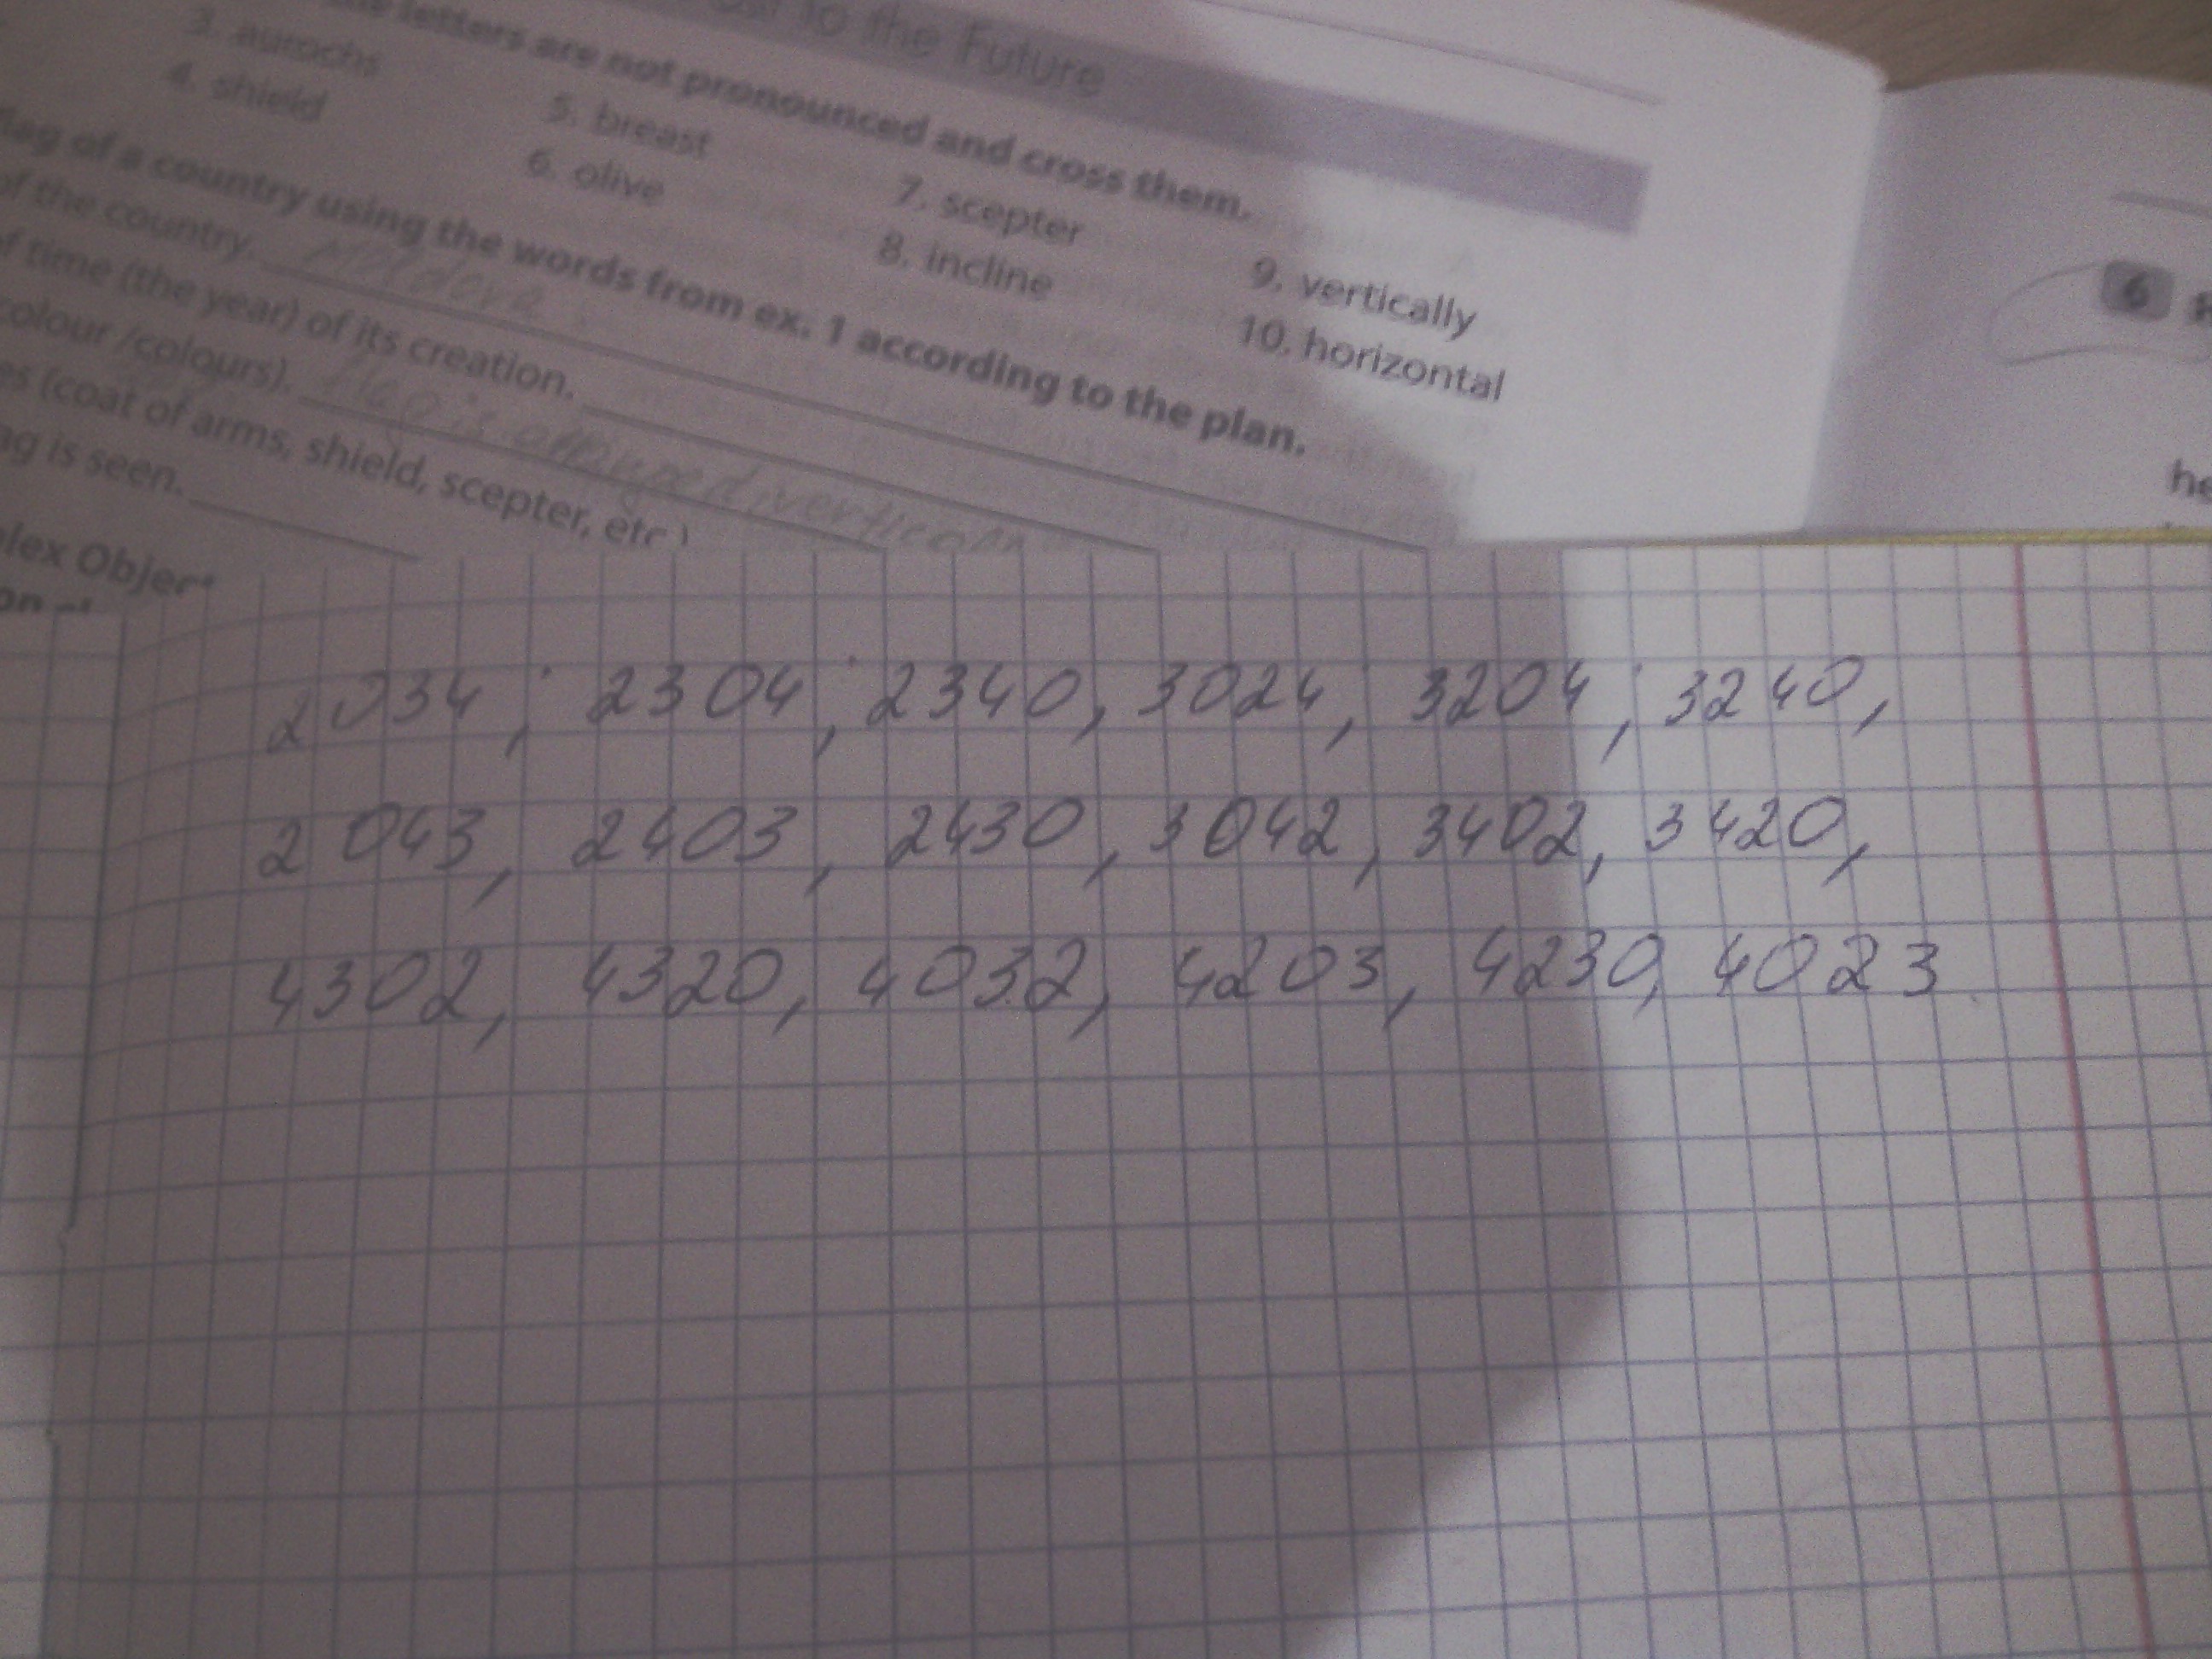 to the Future
letters are not pronounced and cross them.
3. aurochs
4. shield
5. breast
6. olive
7. scepter
8. incline
9. vertically
10. horizontal
flag of a country using the words from ex. 1 according to the plan.
of the country. Moldova
of time (the year) of its creation.
colour /colours). Flag is
(coat of arms, shield, scepter, etc.)
is seen.
6
he
2034, 2304, 2340, 3024, 3204, 3240,
2043, 2403, 2430, 3042, 3402, 3420,
4302, 4320, 4032, 4203, 4230, 4023